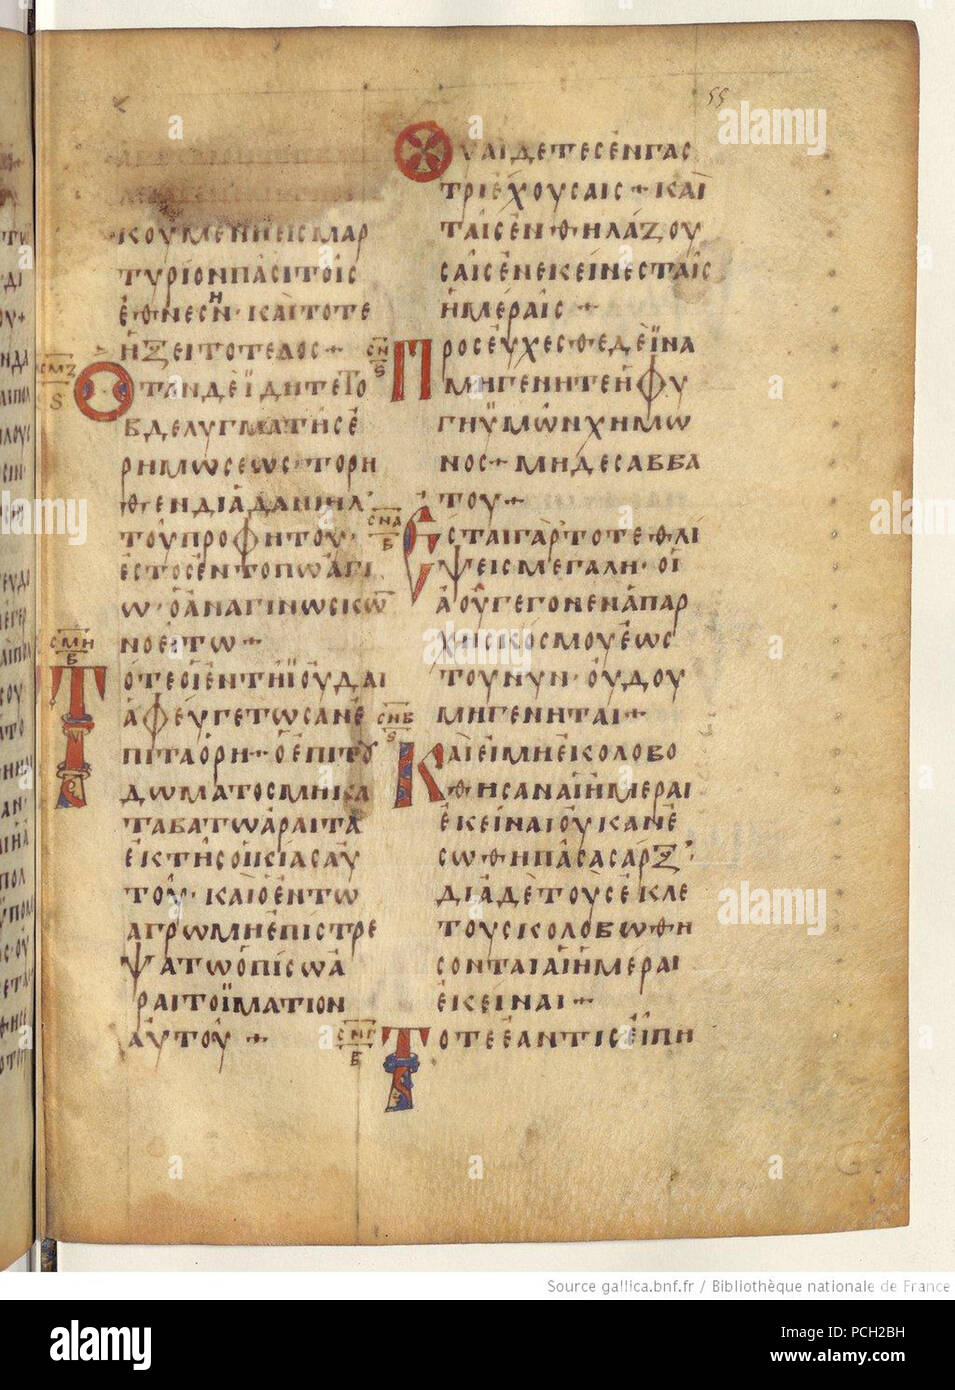 55
ΚΟΥΜΕΝΗΕΙϹΜΑΡ
ΤΥΡΙΟΝΠΑϹΙΤΟΙϹ
ΕΘΝΕϹΗΝ·ΚΑΙΤΟΤΕ
ΗΞΕΙΤΟΤΕΛΟϹ+
ϹΜΖ
Ϛ
ΟΤΑΝΔΕΪΔΗΤΕΤΟ
ΒΔΕΛΥΓΜΑΤΗϹΕ
ΡΗΜΩϹΕΩϹ·ΤΟΡΗ
ΘΕΝΔΙΑΔΑΝΙΗΛ
ΤΟΥΠΡΟΦΗΤΟΥ·
ΕϹΤΟϹΕΝΤΟΠΩΑΓΙ
Ω·ΟΑΝΑΓΙΝΩϹΚΩ
ΝΟΕΙΤΩ+
ϹΜΗ
Β
ΤΟΤΕΟΙΕΝΤΗΪΟΥΔΑΙ
ΑΦΕΥΓΕΤΩϹΑΝΕ
ΠΙΤΑΟΡΗ+ΟΕΠΙΤΟΥ
ΔΩΜΑΤΟϹΜΗΚΑ
ΤΑΒΑΤΩΑΡΑΙΤΑ
ΕΚΤΗϹΟΙΚΙΑϹΑΥ
ΤΟΥ·ΚΑΙΟΕΝΤΩ
ΑΓΡΩΜΗΕΠΙϹΤΡΕ
ΨΑΤΩΟΠΙϹΩΑ
ΡΑΙΤΟΪΜΑΤΙΟΝ
ΑΥΤΟΥ+
ΟΥΑΙΔΕΤΕϹΕΝΓΑϹ
ΤΡΙΕΧΟΥϹΑΙϹ+ΚΑΙ
ΤΑΙϹΕΝΘΗΛΑΖΟΥ
ϹΑΙϹΕΝΕΚΕΙΝΕϹΤΑΙϹ
ΗΜΕΡΑΙϹ+
ϹΝ
Ϛ
ΠΡΟϹΕΥΧΕϹΘΕΔΕΪΝΑ
ΜΗΓΕΝΗΤΕΗΦΥ
ΓΗΫΜΩΝΧΗΜΩ
ΝΟϹ+ΜΗΔΕϹΑΒΒΑ
ΤΟΥ+
ϹΝΑ
Β
ΕϹΤΑΙΓΑΡΤΟΤΕΘΛΙ
ΨΕΙϹΜΕΓΑΛΗ·ΟΙ
ΑΟΥΓΕΓΟΝΕΝΑΠΑΡ
ΧΗϹΚΟϹΜΟΥΕΩϹ
ΤΟΥΝΥΝ·ΟΥΔΟΥ
ΜΗΓΕΝΗΤΑΙ+
ϹΝΒ
Ϛ
ΚΑΙΕΙΜΗΕΚΟΛΟΒΟ
ΘΗϹΑΝΑΙΗΜΕΡΑΙ
ΕΚΕΙΝΑΙΟΥΚΑΝΕ
ϹΩΘΗΠΑϹΑϹΑΡΞ·
ΔΙΑΔΕΤΟΥϹΕΚΛΕ
ΤΟΥϹΚΟΛΟΒΩΘΗ
ϹΟΝΤΑΙΑΙΗΜΕΡΑΙ
ΕΚΕΙΝΑΙ+
ϹΝΓ
Β
ΤΟΤΕΕΑΝΤΙϹΕΙΠΗ
Source gallica.bnf.fr / Bibliothèque nationale de France
alamy
Image ID: PCH2BH
www.alamy.com